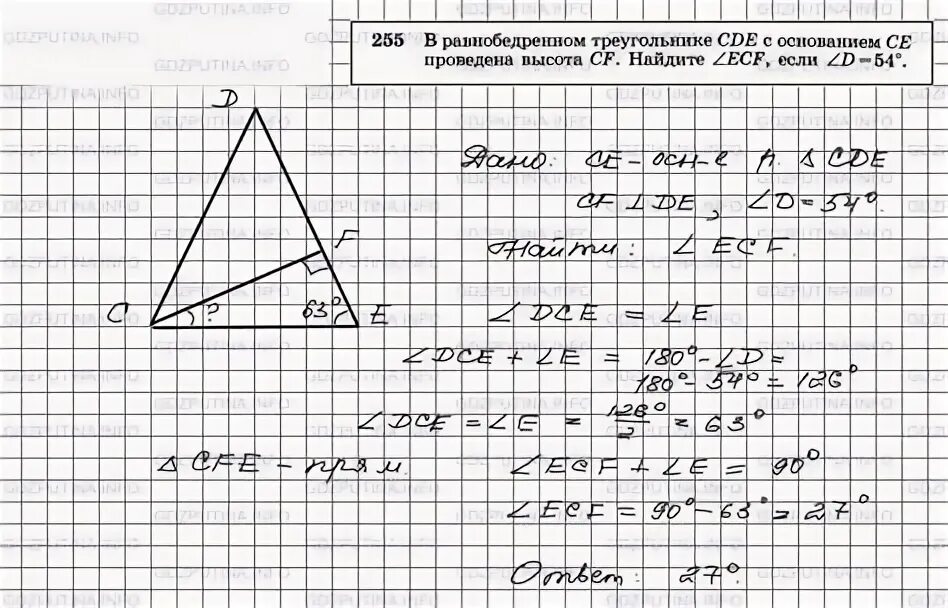 255 В равнобедренном треугольнике CDE с основанием CE
проведена высота CF. Найдите ∠ECF, если ∠D = 54°.
D
F
C
?
63°
E
Дано: CE - осн-е р. Δ CDE
CF ⊥ DE, ∠D = 54°.
Найти: ∠ECF.
∠DCE = ∠E
∠DCE + ∠E = 180° - ∠D =
180° - 54° = 126°
∠DCE = ∠E = 126°/2 = 63°
Δ CFE - прям. ∠ECF + ∠E = 90°
∠ECF = 90° - 63° = 27°
Ответ: 27°.